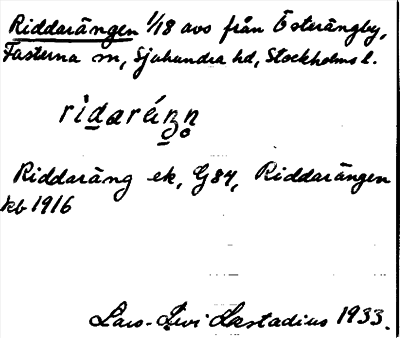 Riddarängen 1/18 avs från Österängby,
Fasterna sn, Sjuhundra hd, Stockholms l.
rìdaréŋn
Riddaräng ek, G84, Riddarängen
kb 1916
Lars-Levi Læstadius 1933.